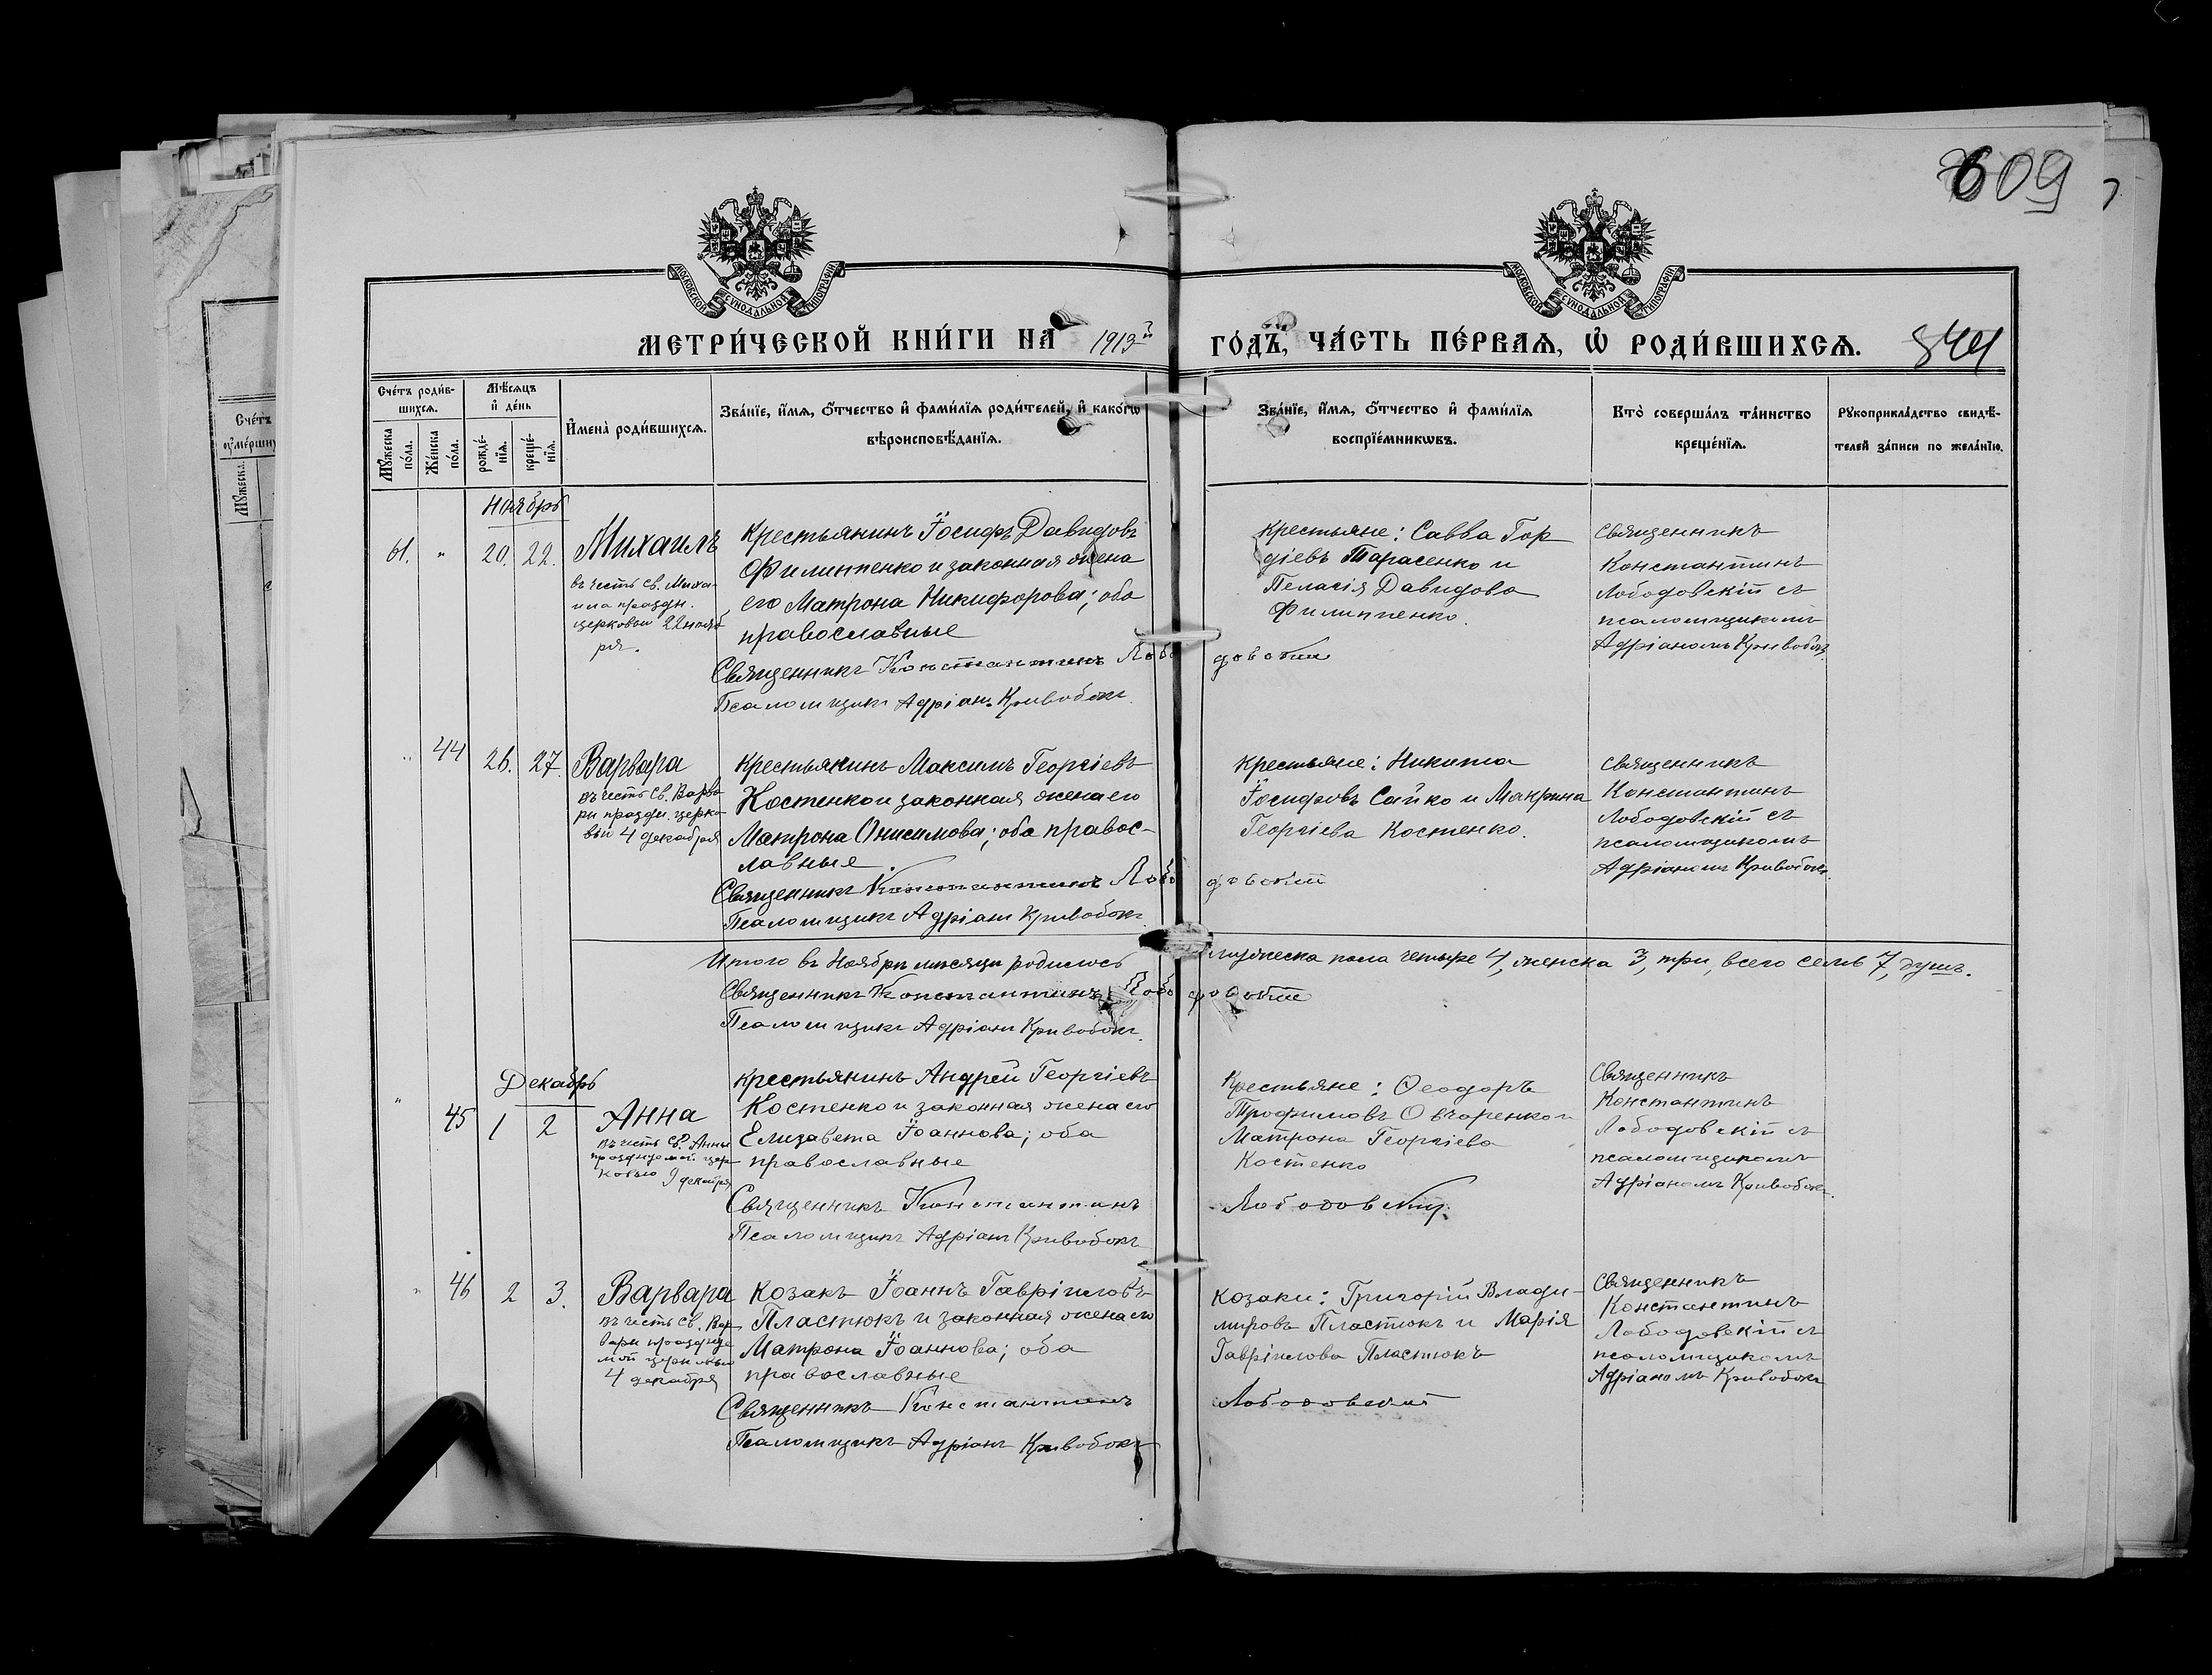 609
МОСКОВСКОЙ СѴНОДАЛЬНОЙ ТИПОГРАФІИ
МОСКОВСКОЙ СѴНОДАЛЬНОЙ ТИПОГРАФІИ
МЕТРИ́ЧЕСКОЙ КНИ́ГИ НА 1913й
ГО́ДЪ, ЧА́СТЬ ПЕ́РВАѦ, Ѡ҆ РОДИ́ВШИХСѦ. 544
Сче́тъ роди́в-
шихсѧ.
Мꙋ́жеска
по́ла.
Же́нска
по́ла.
Мѣ́сѧцъ
и҆ де́нь
рожде́-
нїѧ.
креще́-
нїѧ.
И҆мена̀ роди́вшихсѧ.
Зва́нїе, и҆́мѧ, ѻ҆́тчество и҆ фами́лїѧ роди́телей, и҆ како́гѡ
вѣроисповѣ́данїѧ.
Зва́нїе, и҆́мѧ, ѻ҆́тчество и҆ фами́лїѧ
воспрїе́мникѡвъ.
Кто̀ соверша́лъ та́инство
креще́нїѧ.
Рꙋкоприкла́дство свидѣ́-
телей за́писи по жела́нїю.
Ноябрь
61. " 20. 22. Михаилъ
въ честь св. Миха-
ила праздн.
церковью 22 нояб
ря.
Крестьянинъ Іосифъ Давидовъ
Филиппенко и законная жена
его Матрона Никифорова; оба
православные
Священникъ Константинъ Лободовскій
Псаломщикъ Адріанъ Кривобокъ
Крестьяне: Савва Гор
діевъ Тарасенко и
Пелагія Давидова
Филиппенко.
Священникъ
Константинъ
Лободовскій съ
псаломщикомъ
Адріаномъ Кривобокъ.
" 44 26. 27. Варвара
въ честь св. Варва
ры праздн. церко
вью 4 декабря
Крестьянинъ Максимъ Георгіевъ
Костенко и законная жена его
Матрона Онисимова; оба правос-
лавные.
Священникъ Константинъ Лободовскій
Псаломщикъ Адріанъ Кривобокъ
Крестьяне: Никита
Іосифовъ Сайко и Макрина
Георгіева Костенко.
Священникъ
Константинъ
Лободовскій съ
псаломщикомъ
Адріаномъ Кривобокъ.
Итого въ Ноябрѣ мѣсяцѣ родилось мужеска пола четыре 4, женска 3, три, всего семь 7, душъ.
Священникъ Константинъ Лободовскій
Псаломщикъ Адріанъ Кривобокъ.
Декабрь
" 45 1 2 Анна
въ честь св. Анны
празднуемой цер
ковью 9 декабря
Крестьянинъ Андрей Георгіевъ
Костенко и законная жена его
Елизавета Іоаннова; оба
православные
Священникъ Константинъ Лободовскій
Псаломщикъ Адріанъ Кривобокъ
Крестьяне: Ѳеодоръ
Трофимовъ Овчаренко и
Матрона Георгіева
Костенко
Священникъ
Константинъ
Лободовскій съ
псаломщикомъ
Адріаномъ Кривобокъ.
" 46 2 3. Варвара
въ честь св. Вар
вары праздуе
мой церковью
4 декабря
Козакъ Іоаннъ Гавріиловъ
Пластюкъ и законная жена его
Матрона Іоаннова; оба
православные
Священникъ Константинъ Лободовскій
Псаломщикъ Адріанъ Кривобокъ
Козаки: Григорій Влади-
мировъ Пластюкъ и Марія
Гавріилова Пластюкъ
Священникъ
Константинъ
Лободовскій съ
псаломщикомъ
Адріаномъ Кривобокъ